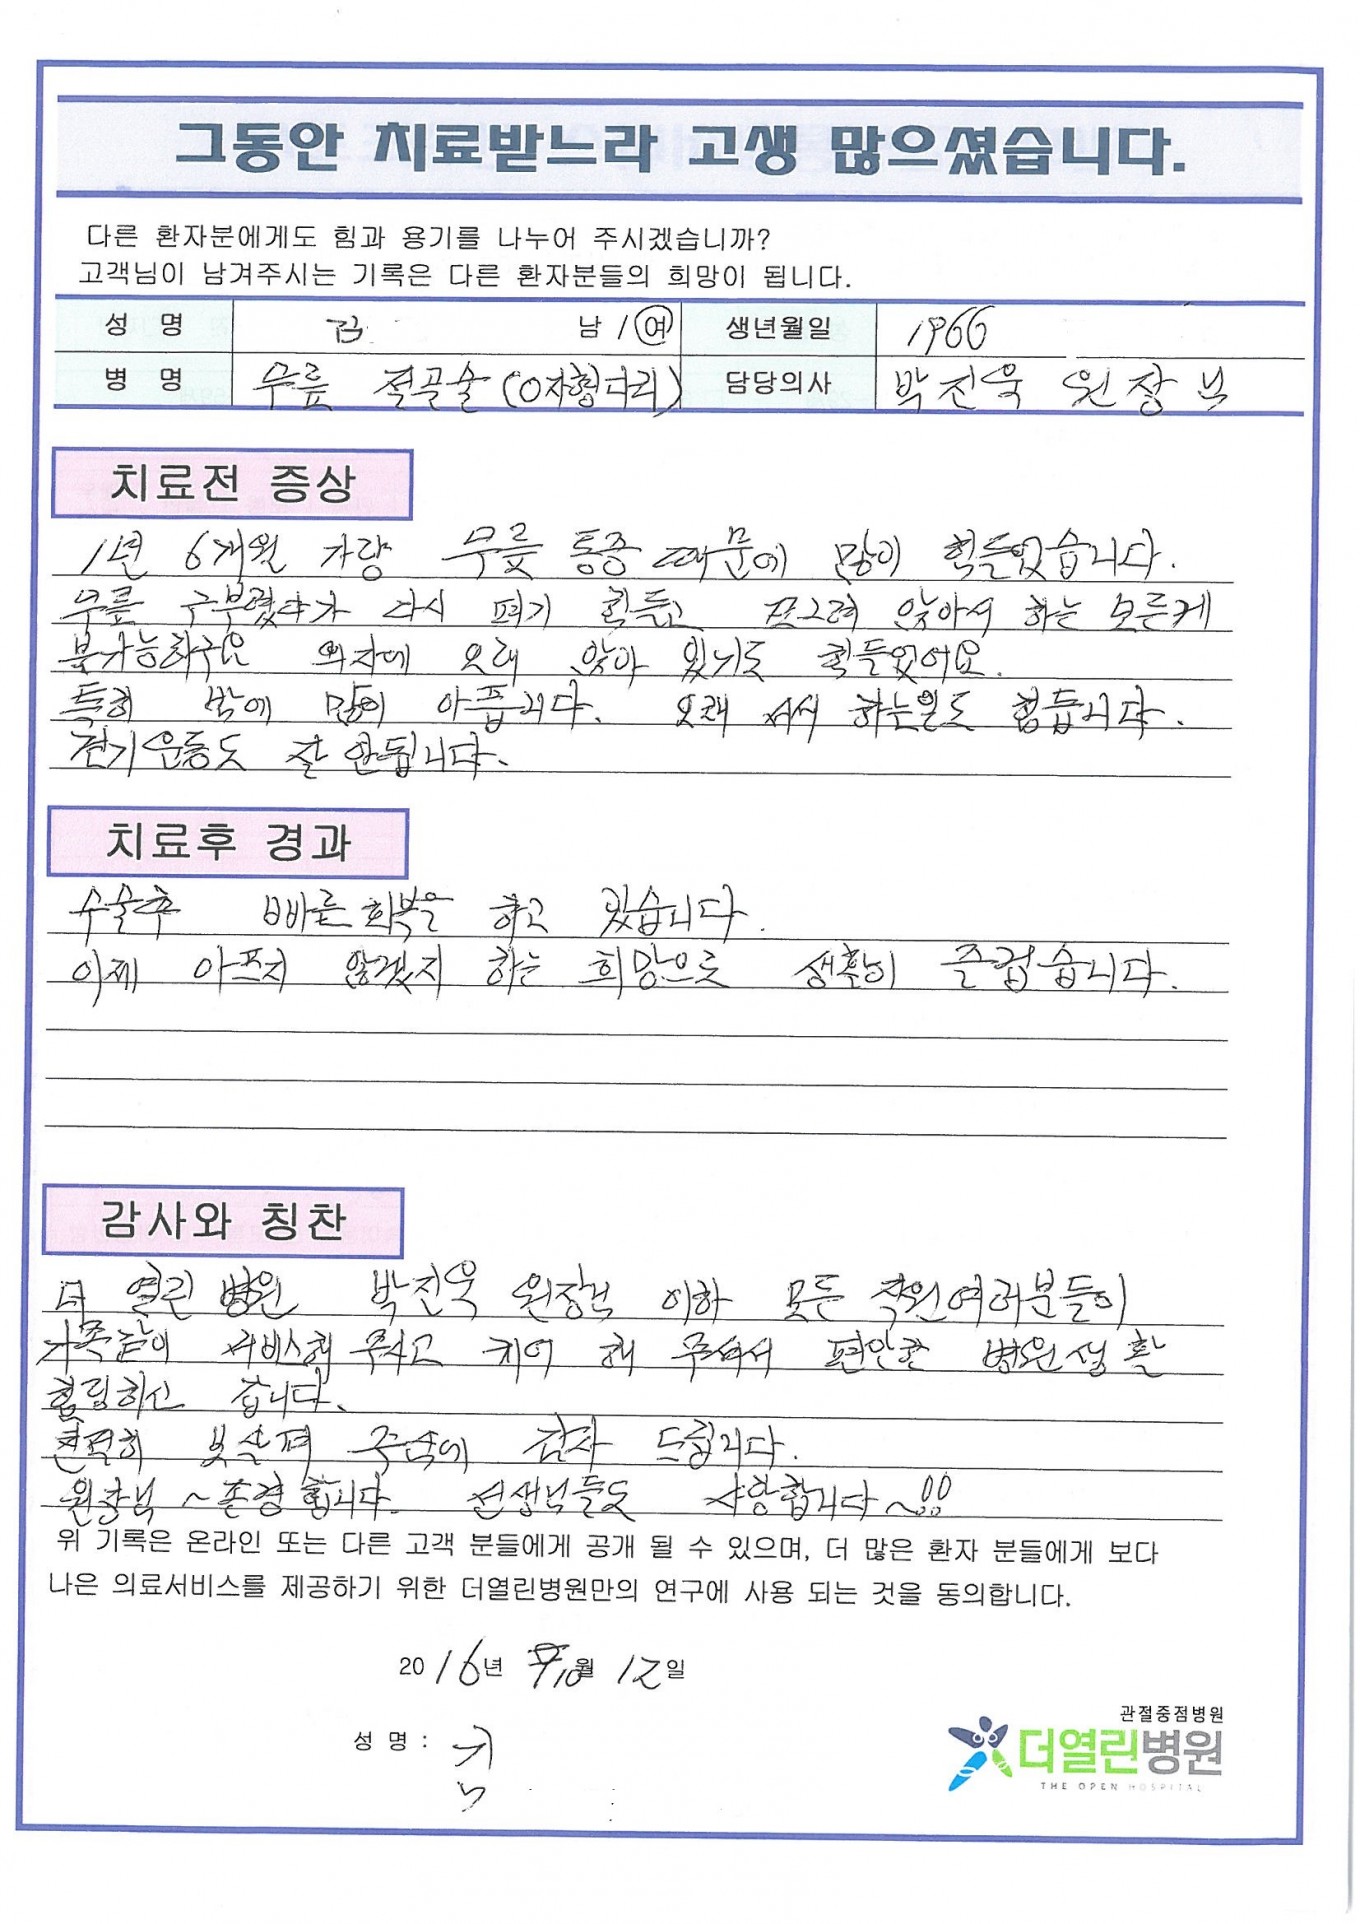 그동안 치료받느라 고생 많으셨습니다.
다른 환자분에게도 힘과 용기를 나누어 주시겠습니까?
고객님이 남겨주시는 기록은 다른 환자분들의 희망이 됩니다.
성 명 김 남 / 여 생년월일 1966
병 명 무릎 절골술 (O자형다리) 담당의사 박진욱 원장님
치료전 증상
1년 6개월 가량 무릎 통증 때문에 많이 힘들었습니다.
무릎 구부렸다가 다시 펴기 힘들고 쪼그려 앉아서 하는 모든게
불가능하구요 의자에 오래 앉아 있기도 힘들었어요.
특히 밤에 많이 아픕니다. 오래 서서 하는일도 힘듭니다.
걷기운동도 잘 안됩니다.
치료후 경과
수술후 빠른 회복을 하고 있습니다.
이제 아프지 않겠지 하는 희망으로 생활이 즐겁습니다.
감사와 칭찬
더 열린 병원 박진욱 원장님 이하 모든 직원여러분들이
가족같이 서비스해 주시고 케어 해 주셔서 편안한 병원생활
힐링하신 갑니다.
보살펴 주심에 감사 드립니다.
원장님 ~ 존경합니다. 선생님들도 사랑합니다~!!
위 기록은 온라인 또는 다른 고객 분들에게 공개 될 수 있으며, 더 많은 환자 분들에게 보다
나은 의료서비스를 제공하기 위한 더열린병원만의 연구에 사용 되는 것을 동의합니다.
2016년 10월 12일
성 명 : 김
관절중점병원
더열린병원
THE OPEN HOSPITAL